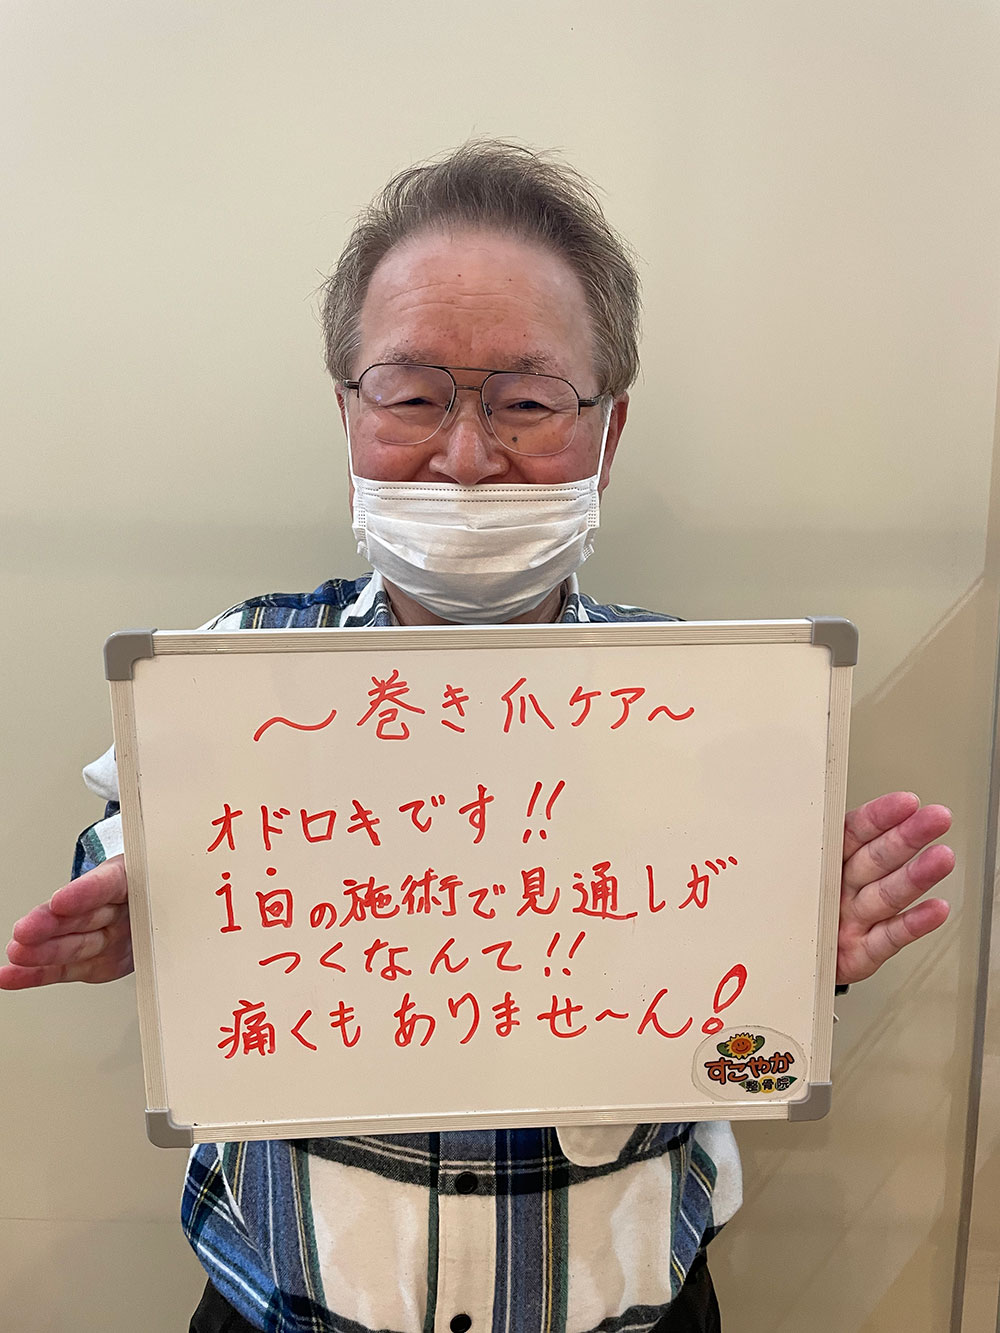 ～巻き爪ケア～
オドロキです!!
1回の施術で見通しが
つくなんて!!
痛くもありませ～ん!
すこやか
整骨院